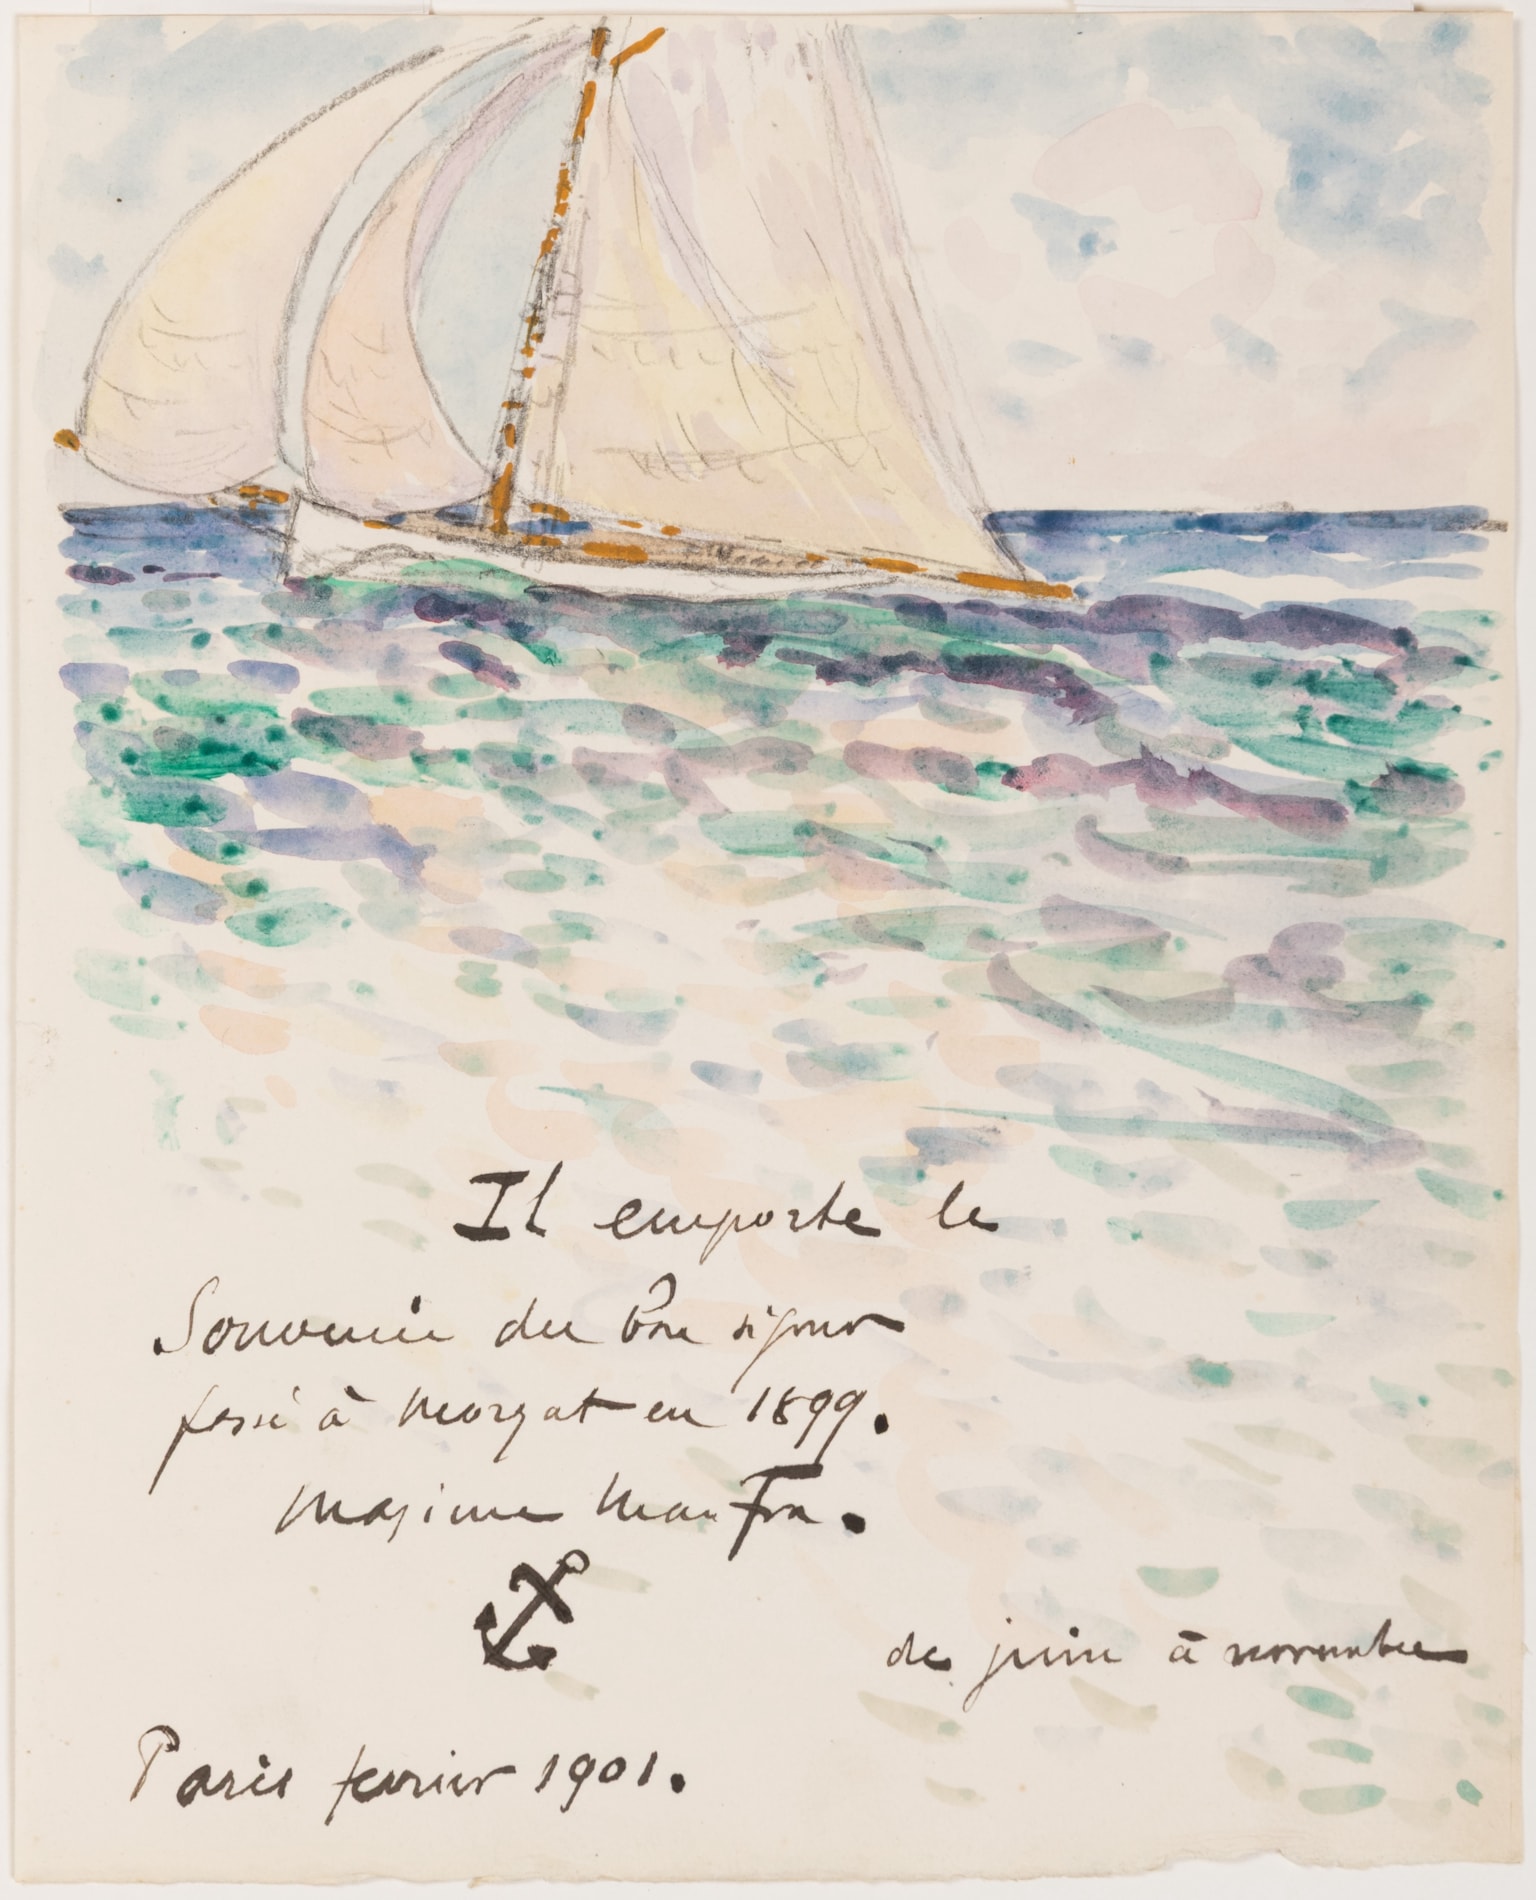 Il emporte le
Souvenir du bon séjour
passé à Morgat en 1899.
Maxime Maufra.
de juin à novembre
Paris fevrier 1901.